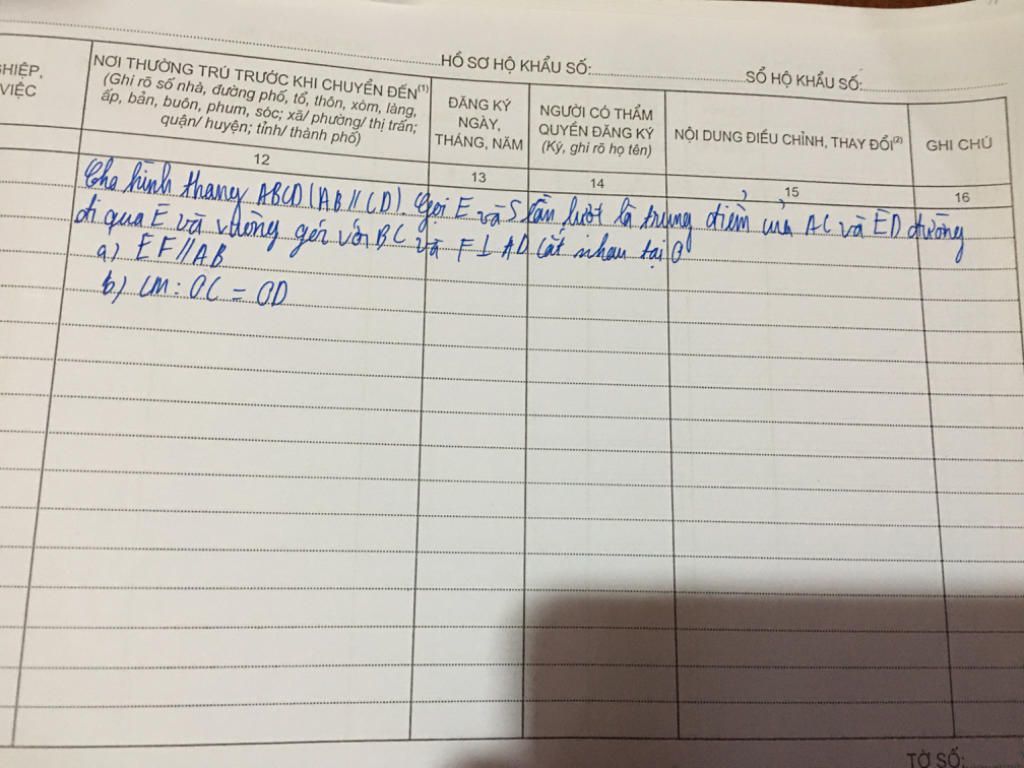 HỒ SƠ HỘ KHẨU SỐ: SỔ HỘ KHẨU SỐ:
GHIỆP,
VIỆC
NƠI THƯỜNG TRÚ TRƯỚC KHI CHUYỂN ĐẾN(1)
(Ghi rõ số nhà, đường phố, tổ, thôn, xóm, làng,
ấp, bản, buôn, phum, sóc; xã/ phường/ thị trấn;
quận/ huyện; tỉnh/ thành phố)
ĐĂNG KÝ
NGÀY,
THÁNG, NĂM
NGƯỜI CÓ THẨM
QUYỀN ĐĂNG KÝ
(Ký, ghi rõ họ tên)
NỘI DUNG ĐIỀU CHỈNH, THAY ĐỔI(2)
GHI CHÚ
12 13 14 15 16
Cho hình thang ABCD (AB // CD). Gọi E và S lần lượt là trung điểm của AC và ED đường
đi qua E và vuông góc với BC và F ⊥ AD cắt nhau tại O
a) EF // AB
b) CM: OC = OD
TỜ SỐ: